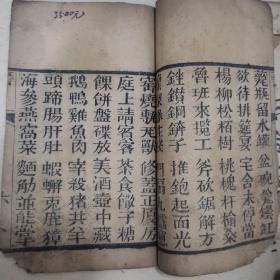 3500元
藥瓶留水罐 盆碗
欲待排筵宴 宅舍未停當
楊柳松柏樹 桃槐杆榆桑
魯班來攬工 斧砍鋸解方
銼鑽鋼錛子 推鉋起面光
窰燒 獸 修蓋正廈房
庭上請賓客 茶食餜子糖
餜餅盤碟放 美酒壺中藏
鵝鴨雞魚肉 宰殺猪共羊
頭蹄腸肝肚 蝦蠏兎鹿獐
海參燕窩菜 麵觔並能當